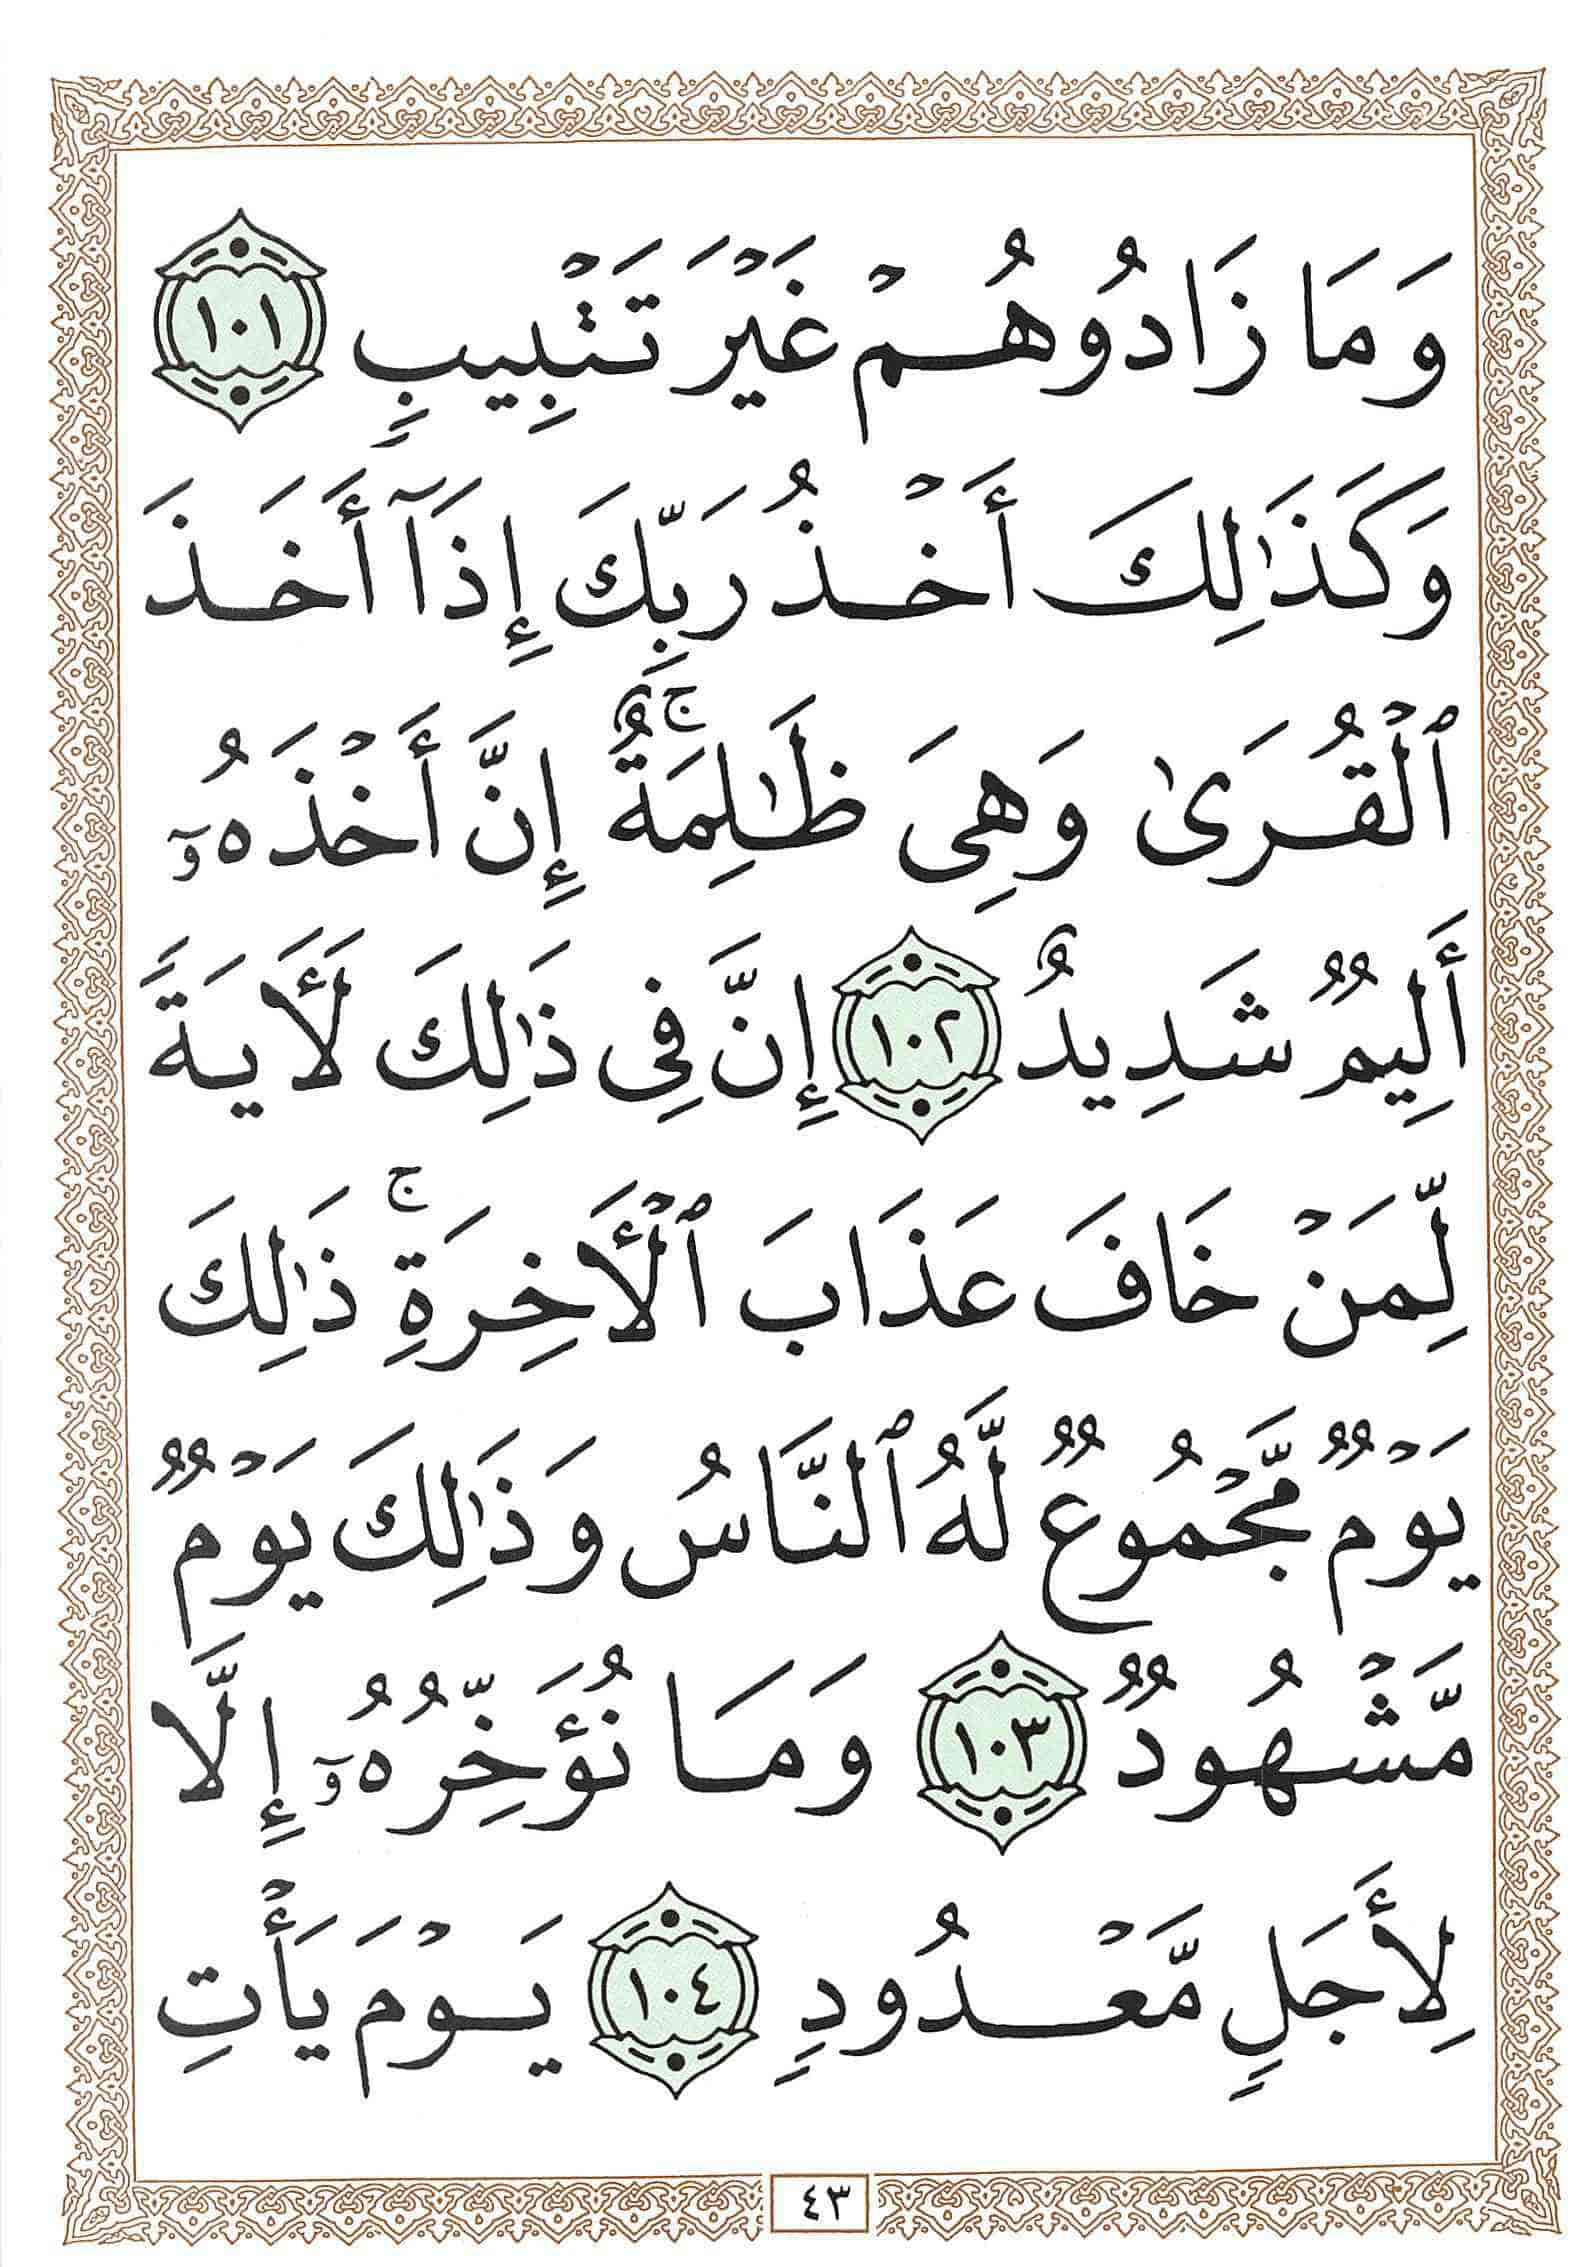 وَمَا زَادُوهُمْ غَيْرَ تَتْبِيبٍ ١٠١
وَكَذَٰلِكَ أَخْذُ رَبِّكَ إِذَآ أَخَذَ
ٱلْقُرَىٰ وَهِىَ ظَـٰلِمَةٌ ۚ إِنَّ أَخْذَهُۥٓ
أَلِيمٌ شَدِيدٌ ١٠٢ إِنَّ فِى ذَٰلِكَ لَـَٔايَةً
لِّمَنْ خَافَ عَذَابَ ٱلْـَٔاخِرَةِ ۚ ذَٰلِكَ
يَوْمٌ مَّجْمُوعٌ لَّهُ ٱلنَّاسُ وَذَٰلِكَ يَوْمٌ
مَّشْهُودٌ ١٠٣ وَمَا نُؤَخِّرُهُۥٓ إِلَّا
لِأَجَلٍ مَّعْدُودٍ ١٠٤ يَوْمَ يَأْتِ
٤٣